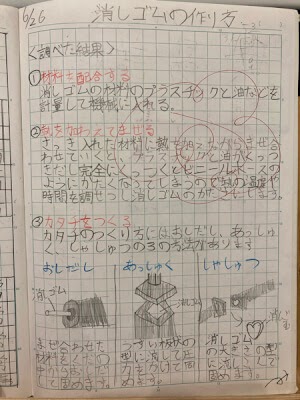 6/26 消しゴムの作り方
<調べた結果>
①材料を配合する
消しゴムの材料のプラスチックと油などを
計量して機械に入れる。
②熱を加わえてまぜる
さっき入れた材料に熱を
わせていくと、プラスチックと油がくっつ
きだし完全にくっつくとビニールホースの
ようにかたくなってしまうので熱の温度や
時間を調せつし消しゴムのかたさにします。
③カタチをつくる
カタチのつくり方にはおしだし、あっしゅ
く、しゃしゅつの3の方法があります。
おしだし あっしゅく しゃしゅつ
消しゴム
消しゴム
まぜ合わせた
材料を
して固めます。
うすい板状の
型に流して圧
力をかけて固
めます。
消しゴム
の大きさの型
に流して
固めます。